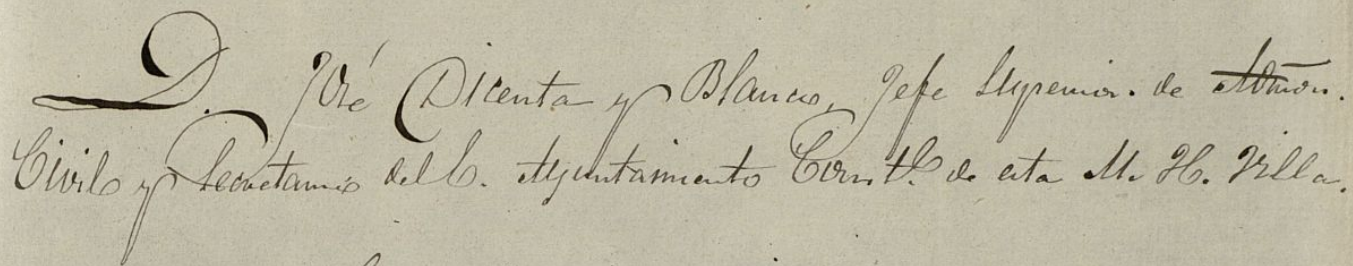 D. José Dicenta y Blanco, Jefe Superior. de Admón.
Civil y Secretario del E. Ayuntamiento Constl. de esta M. H. Villa.